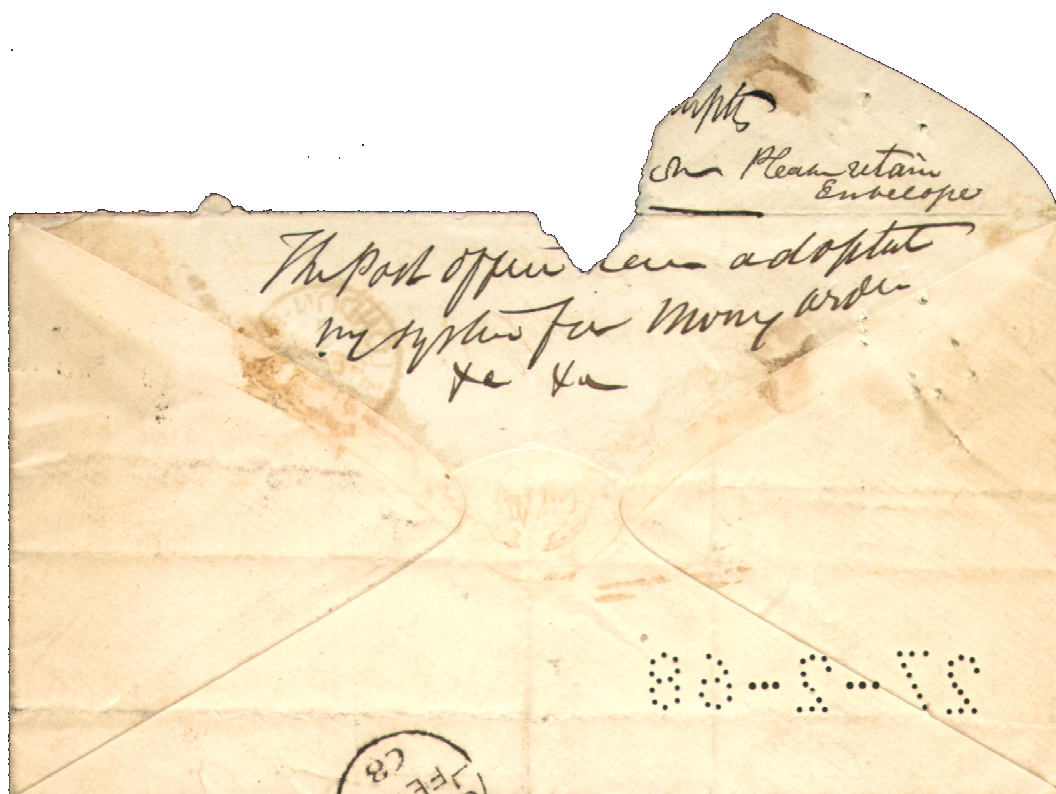 Please retain
Envelope
The Post Office have adopted
my system for Money orders
&c &c
27-2-68